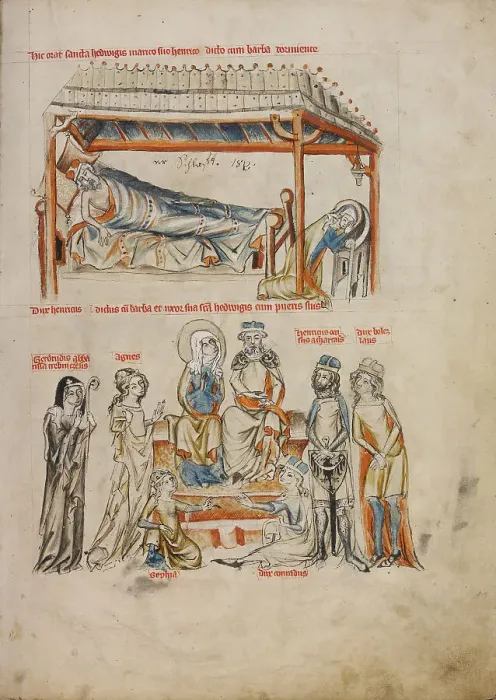 hic orat sancta hedwigis marito suo henrico dicto cum barba dormiente
Dux henricus dictus cū barba et uxor sua scā hedwigis cum pueris suis
Gerdrudis abba
tissa trebnicensis
agnes
dux boles
laus
Sophia
dux conradus